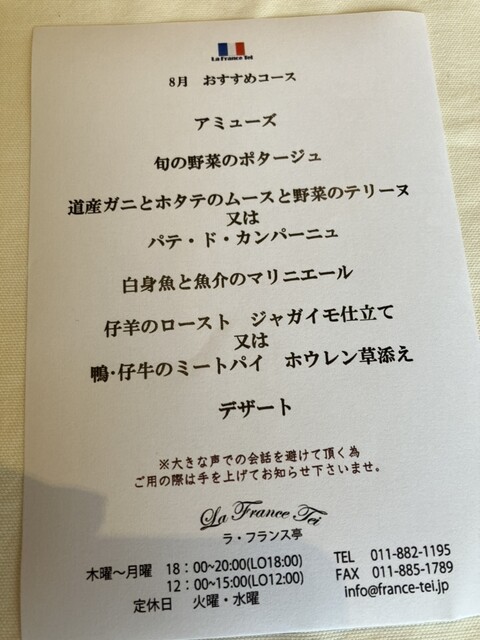 La France Tei
8月 おすすめコース
アミューズ
旬の野菜のポタージュ
道産ガニとホタテのムースと野菜のテリーヌ
又は
パテ・ド・カンパーニュ
白身魚と魚介のマリニエール
仔羊のロースト ジャガイモ仕立て
又は
鴨・仔牛のミートパイ ホウレン草添え
デザート
※大きな声での会話を避けて頂く為
ご用の際は手を上げてお知らせ下さいませ。
La France Tei
ラ・フランス亭
木曜～月曜 18:00~20:00(LO18:00)
12:00~15:00(LO12:00)
定休日 火曜・水曜
TEL 011-882-1195
FAX 011-885-1789
info@france-tei.jp